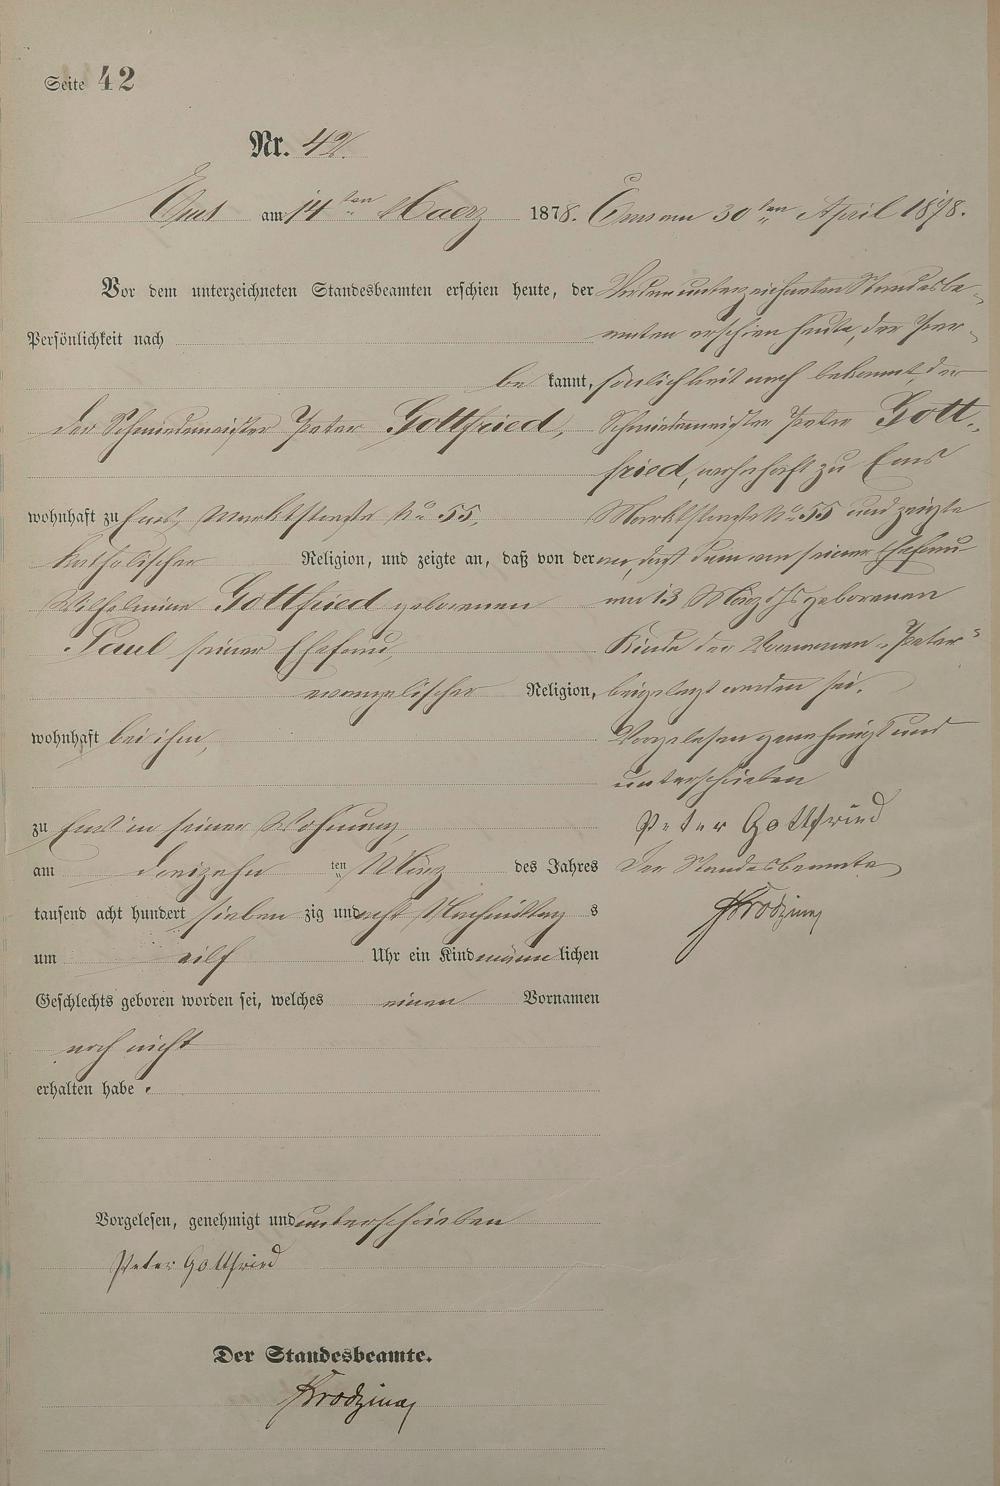 Seite 42
Nr. 42.
Ems am 14ten Maerz 1878.
Vor dem unterzeichneten Standesbeamten erschien heute, der
Persönlichkeit nach
be kannt,
der Schmiedemeister Peter Gottfried,
wohnhaft zu Ems, Marktstraße No 55,
katholischer Religion, und zeigte an, daß von der
Wilhelmine Gottfried geborenen
Paul, seiner Ehefrau,
evangelischer Religion,
wohnhaft bei ihm,
zu Ems in seiner Wohnung,
am dreizehn ten März des Jahres
tausend acht hundert sieben zig und acht Nachmittag s
um eilf Uhr ein Kind männ lichen
Geschlechts geboren worden sei, welches einen Vornamen
noch nicht
erhalten habe.
Vorgelesen, genehmigt und unterschrieben
Peter Gottfried
Der Standesbeamte.
Ems am 30ten April 1878.
Vor dem unterzeichneten Standesbe-
amten erschien heute, der Per-
sönlichkeit nach bekannt, der
Schmiedemeister Peter Gott-
fried, wohnhaft zu Ems
Marktstraße No 55 und zeigte
an, daß dem von seiner Ehefrau
am 13 März d Js geborenen
Kinde der Vornamen "Peter"
beigelegt worden sei.
Vorgelesen genehmigt und
unterschrieben
Peter Gottfried
Der Standesbeamte